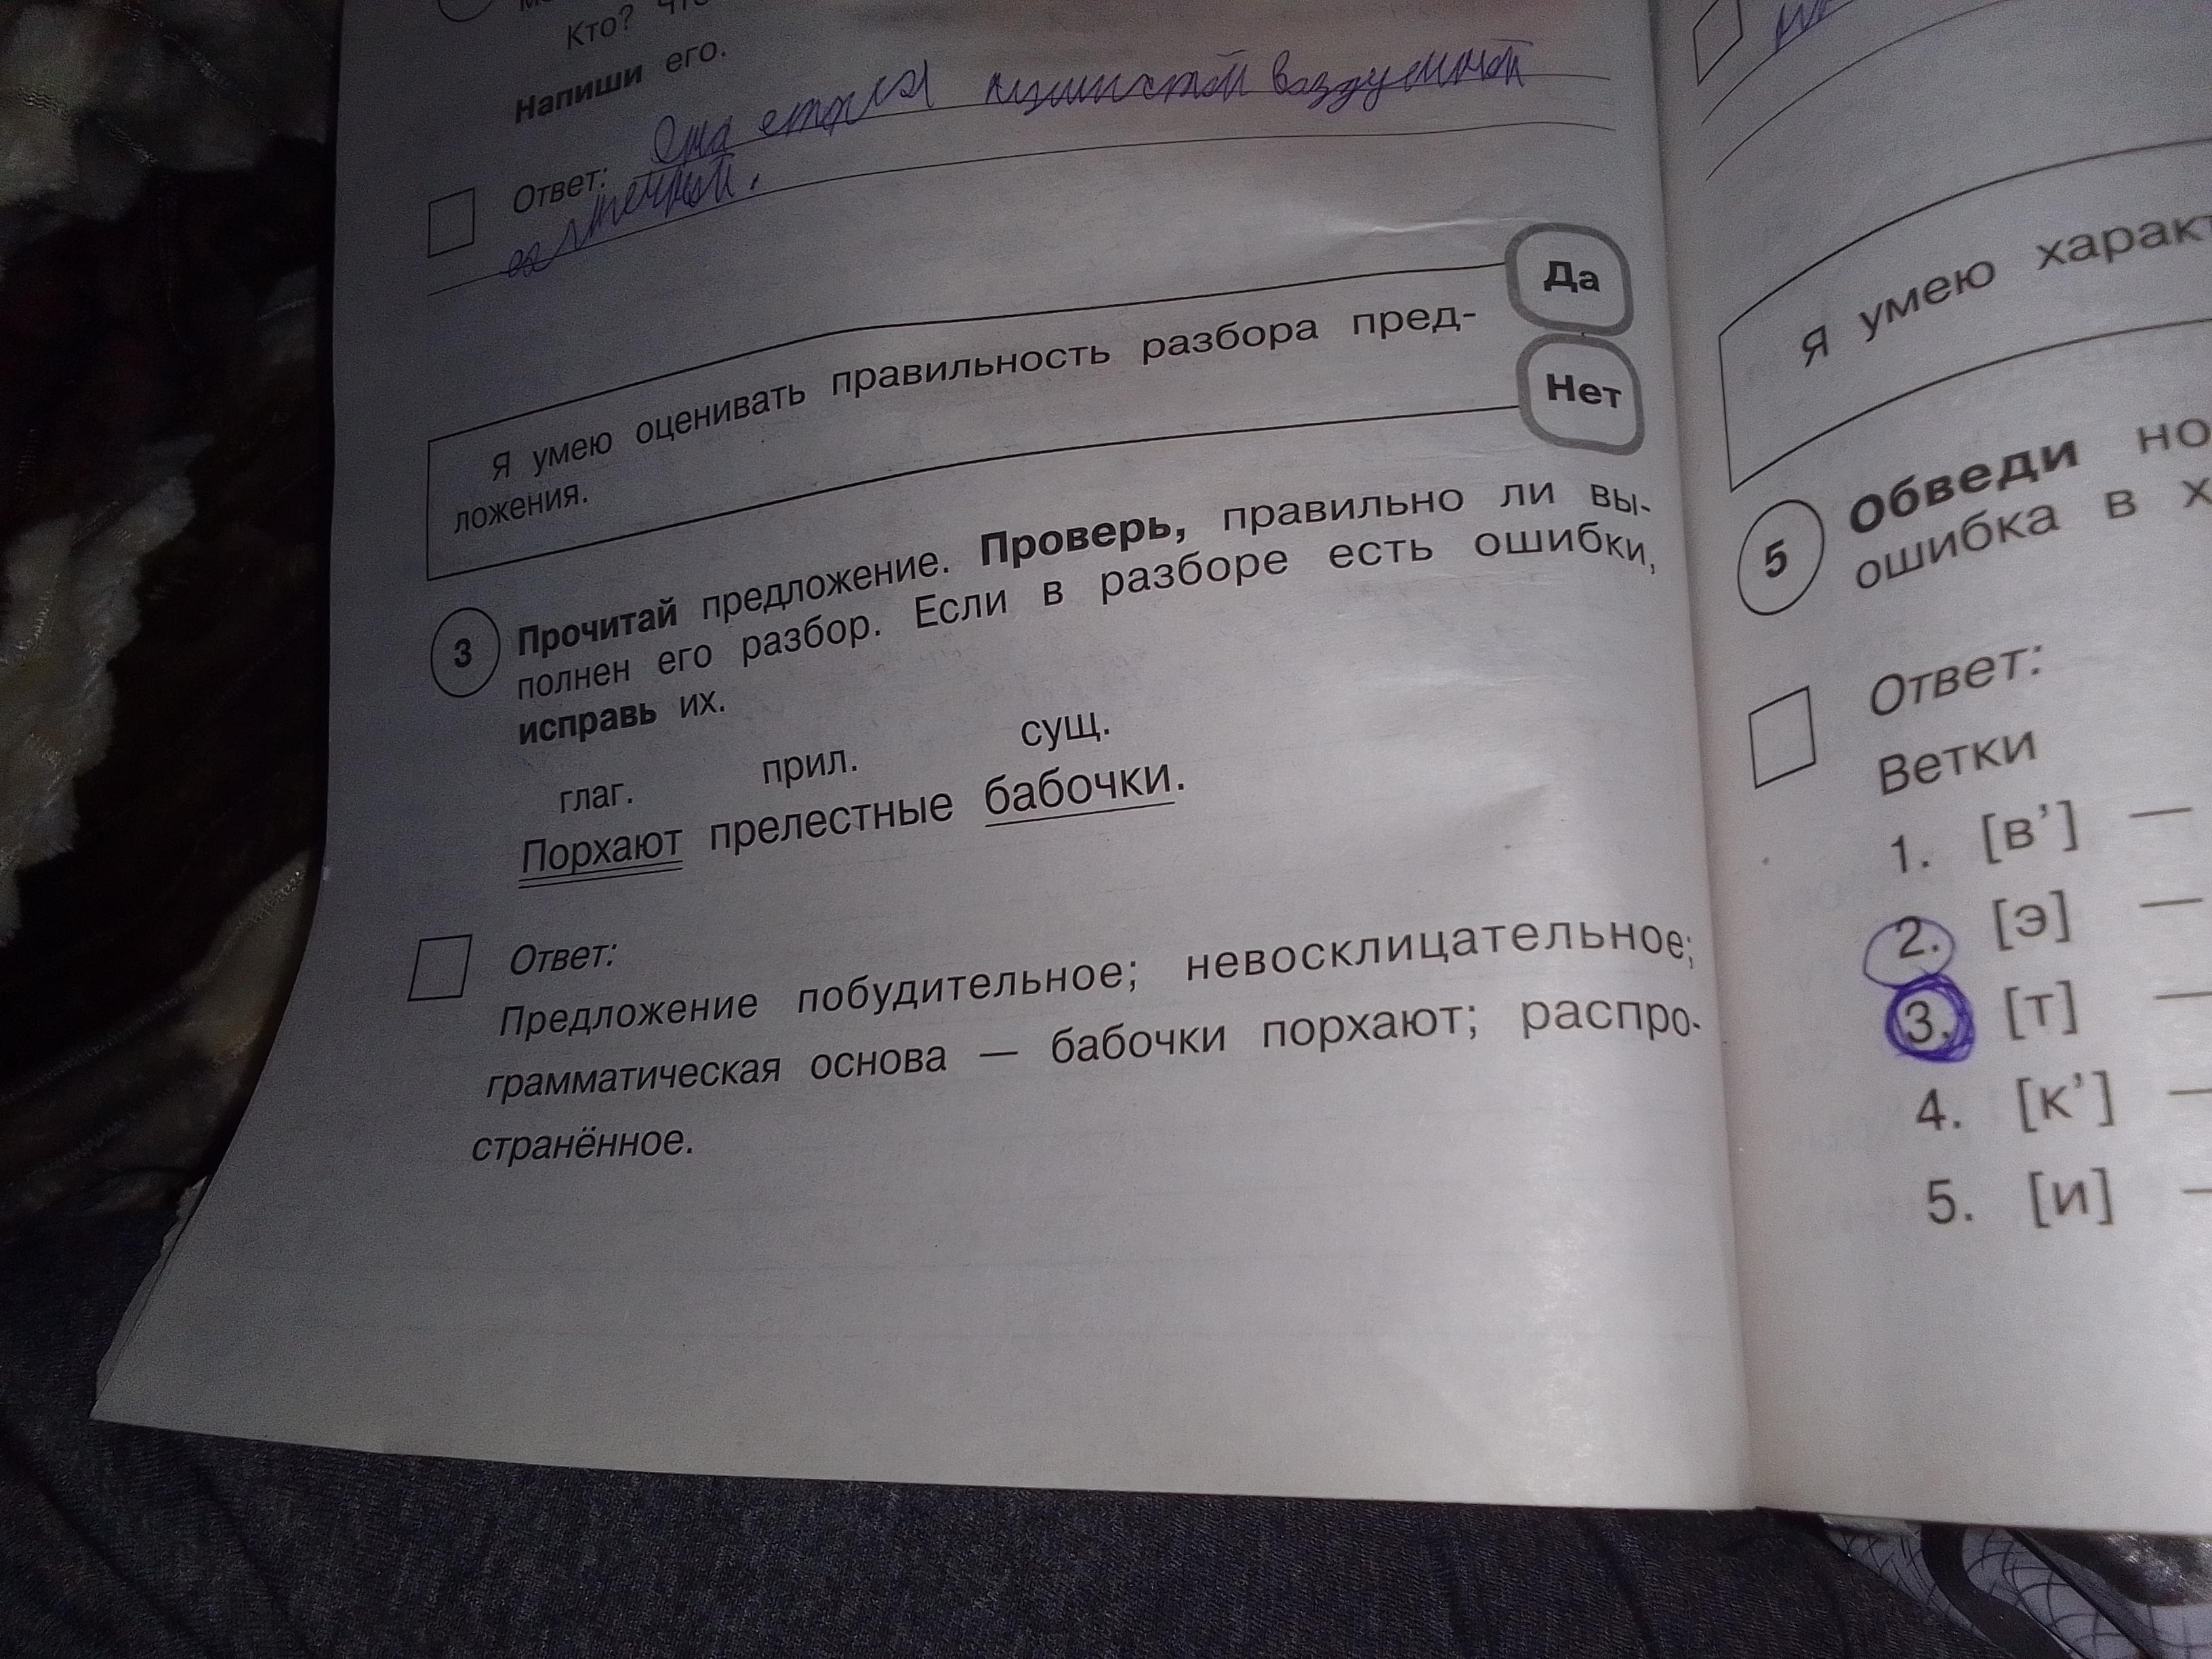 Кто?
Напиши его.
Ответ: Она
Я умею оценивать правильность разбора пред-
ложения.
Да
Нет
3 Прочитай предложение. Проверь, правильно ли вы-
полнен его разбор. Если в разборе есть ошибки,
исправь их.
глаг. прил. сущ.
Порхают прелестные бабочки.
Ответ:
Предложение побудительное; невосклицательное;
грамматическая основа — бабочки порхают; распро-
странённое.
Я умею характ
5 Обведи но
ошибка в х
Ответ:
Ветки
1. [в’] —
2. [э] —
3. [т] —
4. [к’] —
5. [и] —